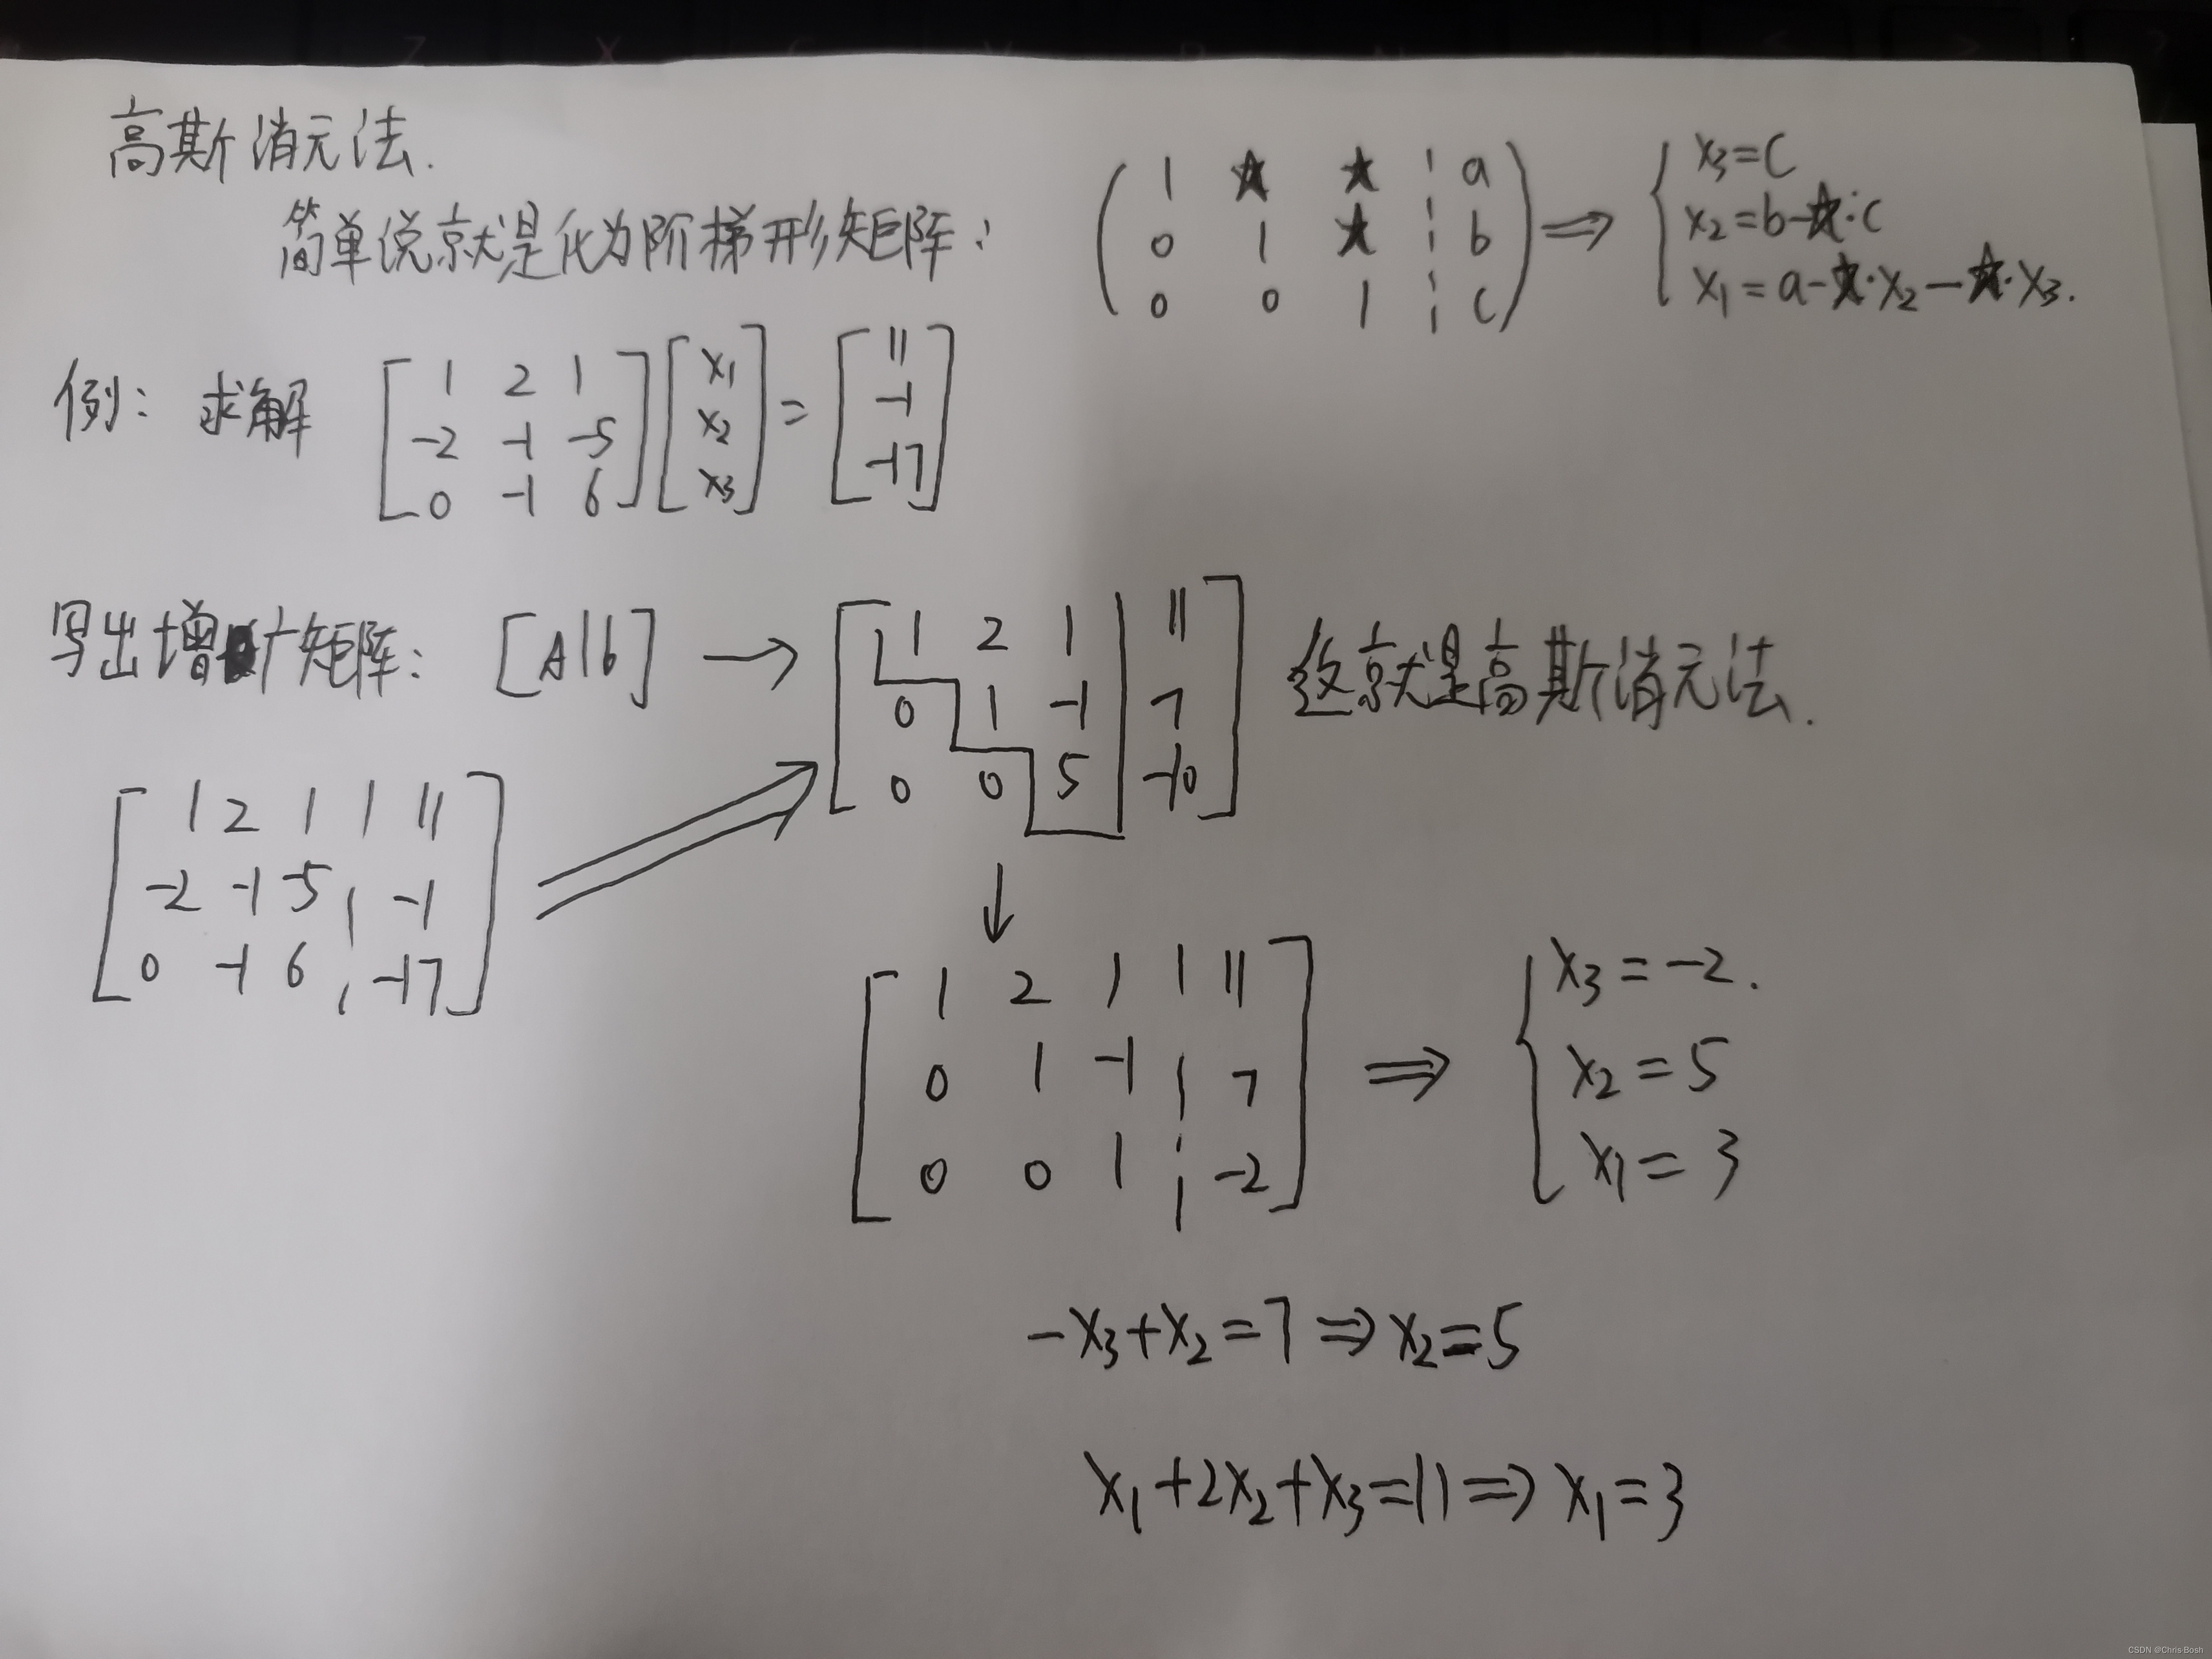 高斯消元法.
简单说就是化为阶梯形矩阵:
( 1 ★ ★ ¦ a
0 1 ★ ¦ b
0 0 1 ¦ c ) ⇒ {
x₃=c
x₂=b-★·c
x₁=a-★·x₂-★·x₃.
例: 求解
[ 1 2 1
-2 -1 -5
0 -1 6 ]
[ x₁
x₂
x₃ ] =
[ 11
-1
-17 ]
写出增广矩阵: [A|b] →
[ 1 2 1 | 11
0 1 -1 | 7
0 0 5 | -10 ]
这就是高斯消元法.
[ 1 2 1 | 11
-2 -1 -5 | -1
0 -1 6 | -17 ] ⇒
↓
[ 1 2 1 | 11
0 1 -1 | 7
0 0 1 ¦ -2 ] ⇒ {
x₃=-2.
x₂=5
x₁=3
-x₃+x₂=7⇒x₂=5
x₁+2x₂+x₃=11⇒x₁=3
CSDN @Chris·Bosh